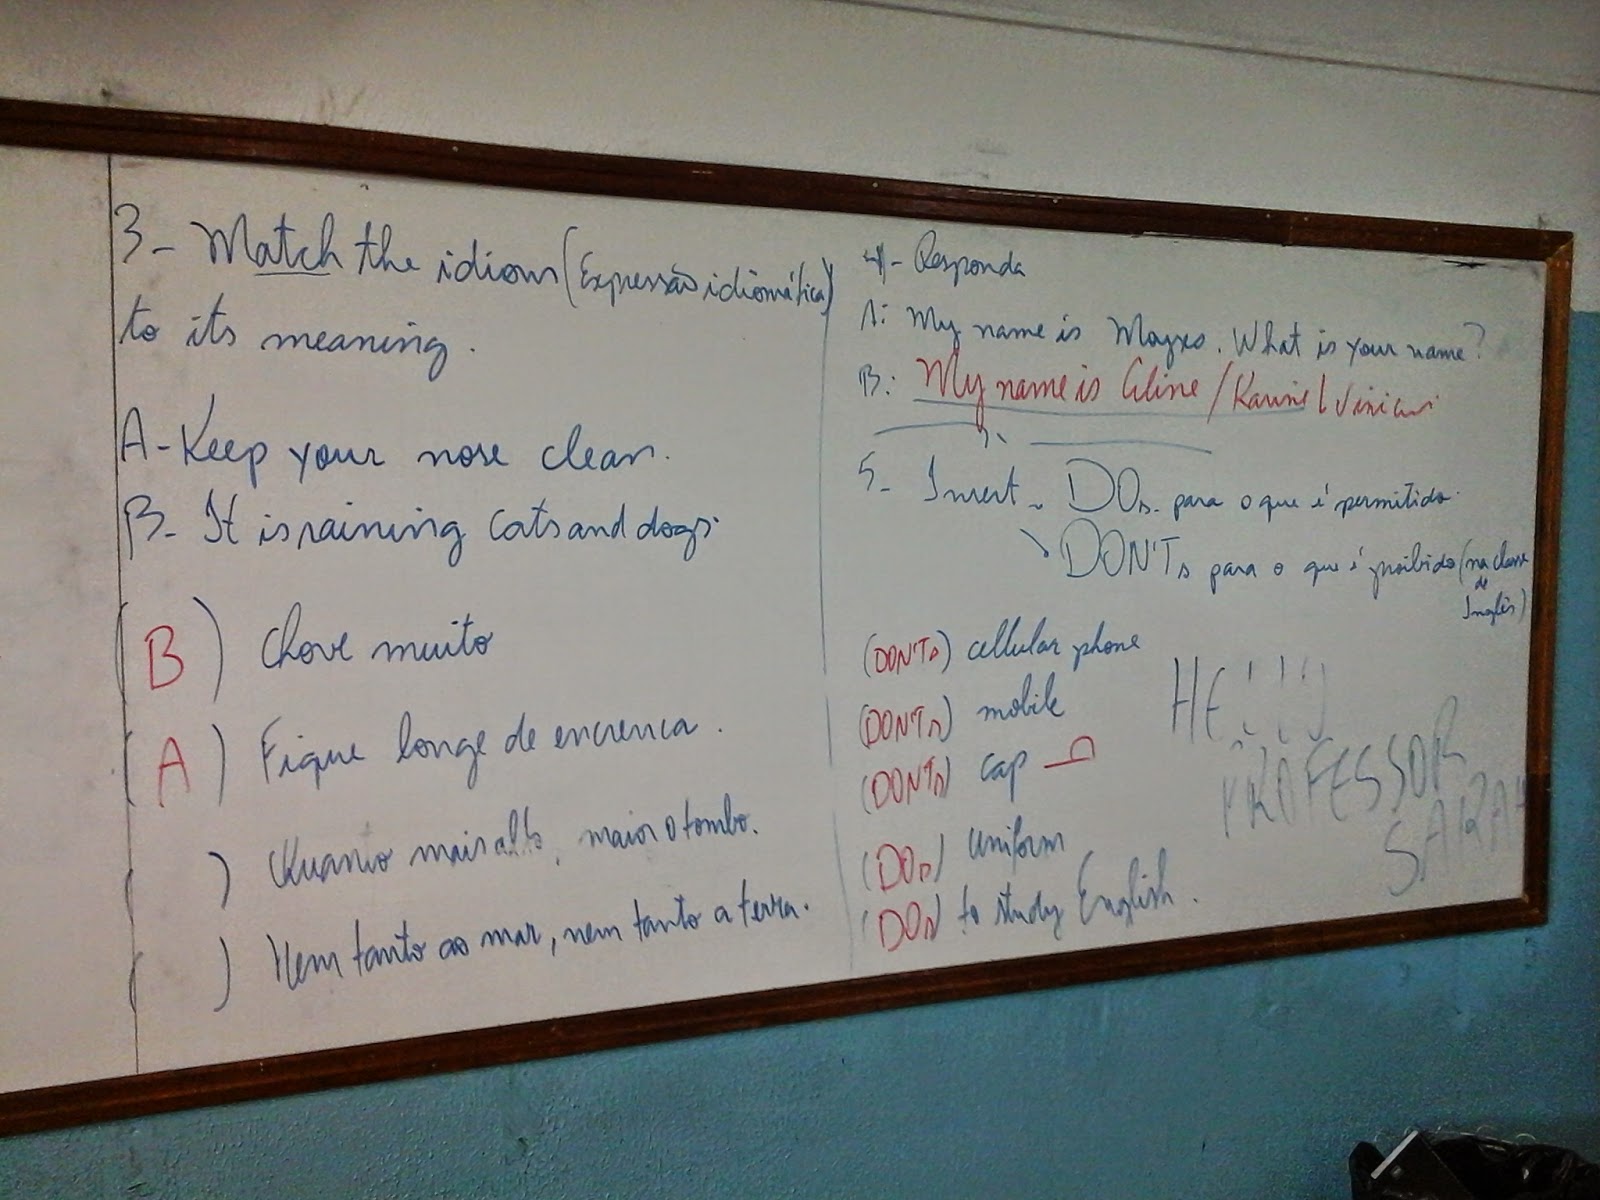 3- Match the idiom (Expressão idiomática)
to its meaning.
A- Keep your nose clean.
B- It is raining cats and dogs.
(B) Chove muito
(A) Fique longe de encrenca.
( ) Quanto mais alto, maior o tombo.
( ) Nem tanto ao mar, nem tanto a terra.
4- Responda
A: My name is . What is your name?
B: My name is Aline / Karine / Vinicius
5- Insert DOs para o que é permitido.
DON'Ts para o que é proibido (na classe
de
Inglês)
(DON'Ts) cellular phone
(DON'Ts) mobile
(DON'Ts) cap
(DOs) uniform
(DOs) to study English.
PROFESSOR
SARAH